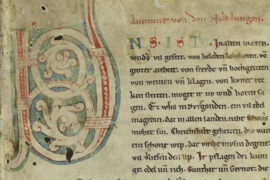 Auenture von den Nibelungen.
N S. I S T. In alten mæren
wnders vil geseit. von heleden lobebæren. von
grozer arebeit. von frevde vn̄ hochgeciten
von weinen vn̄ klagen. von kuner recken
striten. muget ir nv wnder horen sa
gen. Ez whs in Bvregonden. ein vil edel
din. daz in allen landen. niht schoners
mohte sin. Chriemhilt geheizen. div wart
ein schone wip. dar vmbe mvsin degene
vil vliesen den lip. Ir pflagen dri kunige
edel vn̄ rich. Gunther vn̄ Gernot. die